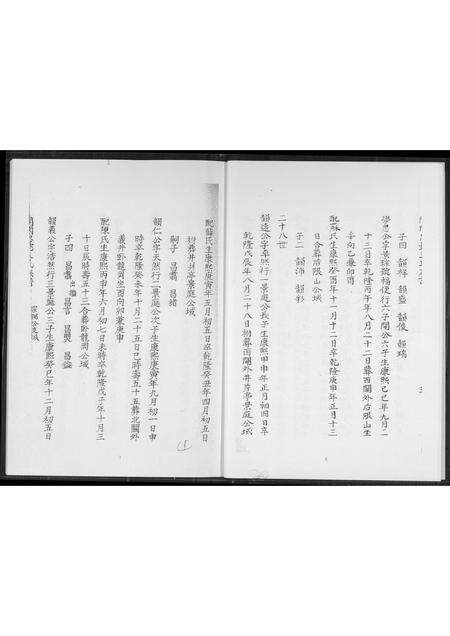 子四 韻祥 韻盛 韻俊 韻瑞
學忠公字景琛號楊伎行六子開公六子生康熙己巳年九月二
十三日卒乾隆丙午年八月二十二日葬西關外后限山坐
辛向乙兼酉卯
配林氏生康熙癸酉年十一月十二日卒乾隆庚申年正月十三
日合葬后限山公域
子二 韻沛 韻彩
二十八世
韻遠公字卓然行一景庭公長子生康熙甲申年正月初四日卒
乾隆戊辰年八月二十八日祔葬西關外井片亭景庭公域
配薛氏生康熙庚寅年五月初五日卒乾隆癸丑年四月初五日
祔葬井片亭景庭公域
嗣子 昌嘉 昌緒
韻仁公字天然行二景庭公次子生康熙庚寅年九月初一日申
時卒乾隆癸未年十月二十五日巳時壽五十五葬北關外
義井臥龍岡坐酉向卯兼庚申
配陳氏生康熙丙申年六月初七日未時卒乾隆戊子年十月三
十日辰時壽五十三合葬臥龍岡公域
子四 昌嘉出繼 昌言 昌奭 昌謚
韻義公字浩然行三景庭公三子生康熙癸巳年十二月初五日